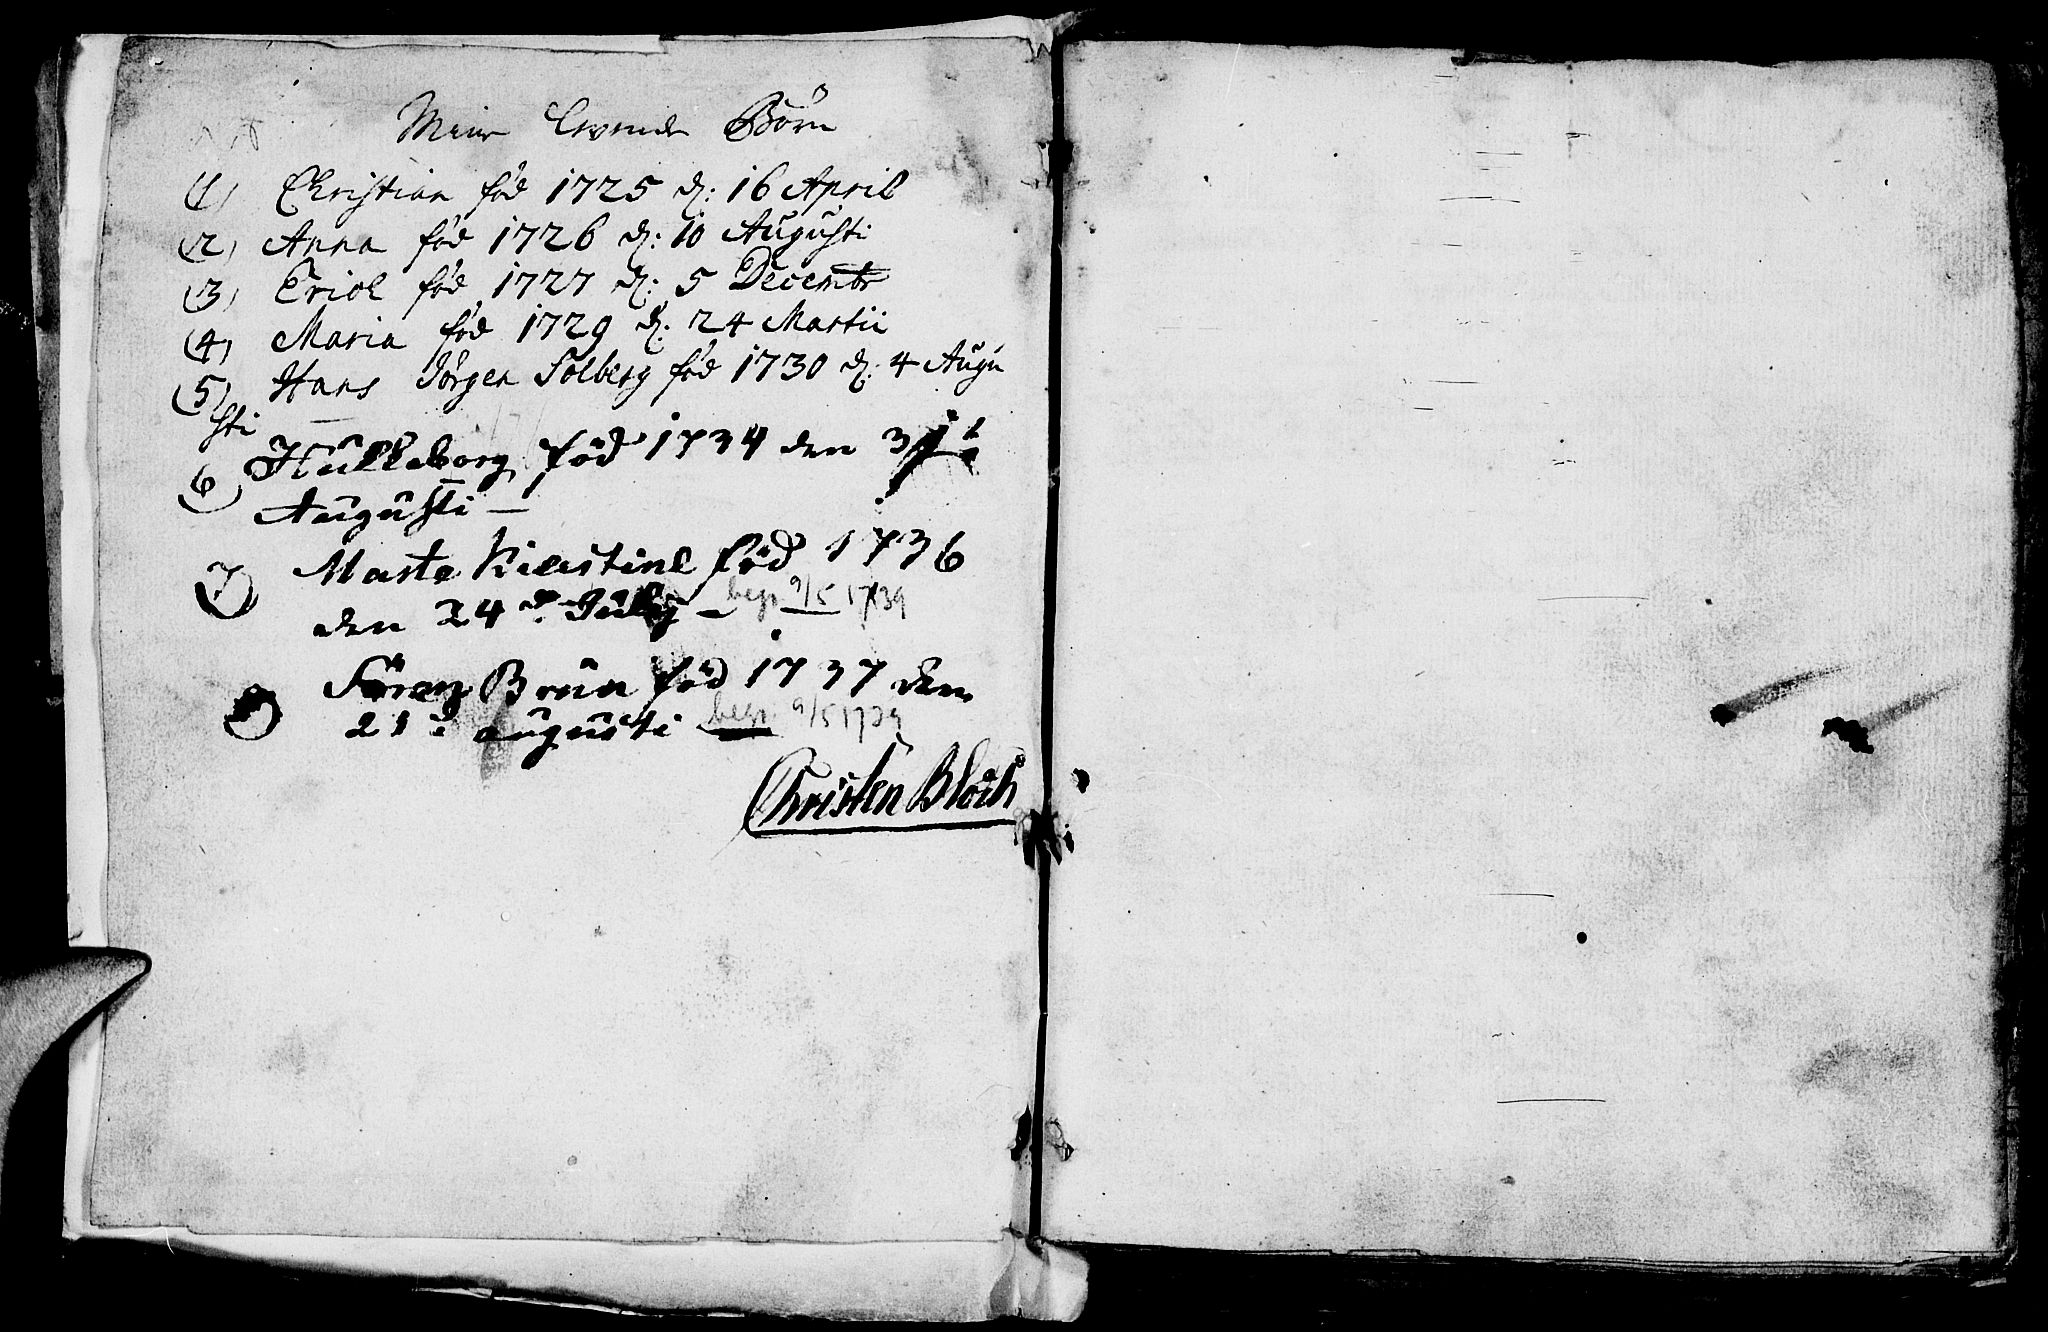 Mine Levende Børn
(1) Christian fød 1725 d: 16 April
(2) Anna fød 1726 d: 10 Augusti
(3) Erich fød 1727 d: 5 Decembr
(4) Maria fød 1729 d: 24 Martii
(5) Hans Jørgen Solberg fød 1730 d: 4 Augu
sti
6) Hülleborg föd 1734 den
Augusti —
7) Marte Kierstine föd 1736
den 24 d. Jüly — begr 9/5 1739
Sören Brün föd 1737 den
21 d. augusti — begr 9/5 1739
Christen Bloch